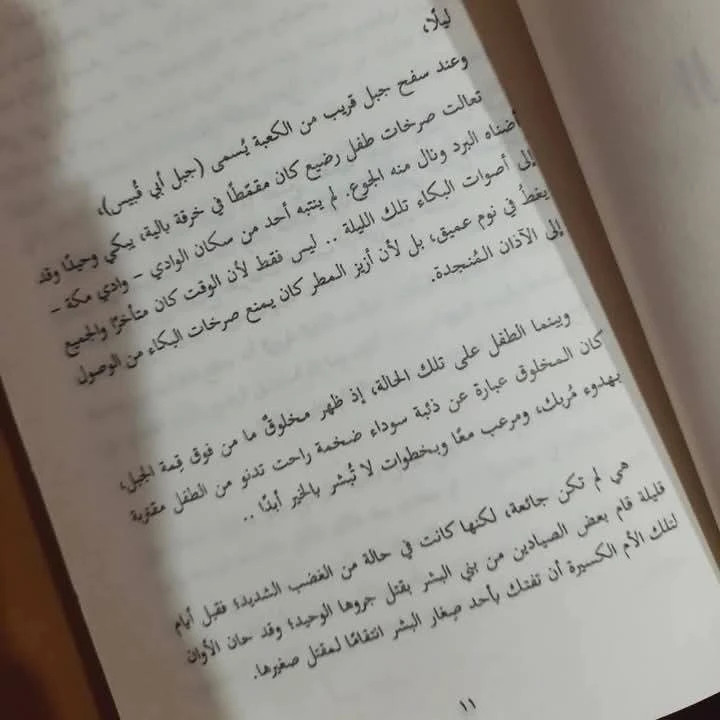 ليلًا،
وعند سفح جبل قريب من الكعبة يُسمى (جبل أبي قُبيس)،
تعالت صرخات طفل رضيع كان مقمّطًا في خرقة بالية، يبكي وحيدًا وقد
أضناه البرد ونال منه الجوع. لم ينتبه أحد من سكان الوادي - وادي مكة -
إلى أصوات البكاء تلك الليلة .. ليس فقط لأن الوقت كان متأخرًا والجميع
يغطُ في نوم عميق، بل لأن أزيز المطر كان يمنع صرخات البكاء من الوصول
إلى الآذان المُنجدة.
وبينما الطفل على تلك الحالة، إذ ظهر مخلوقٌ ما من فوق قمة الجبل؛
كان المخلوق عبارة عن ذئبة سوداء ضخمة راحت تدنو من الطفل مقتربة
بهدوء مُربك، ومرعب معًا وبخطوات لا تُبشر بالخير أبدًا ..
هي لم تكن جائعة، لكنها كانت في حالة من الغضب الشديد؛ فقبل أيام
قليلة قام بعض الصيادين من بني البشر بقتل جروها الوحيد؛ وقد حان الأوان
لتلك الأم الكسيرة أن تفتك بأحد صِغار البشر انتقامًا لمقتل صغيرها.
١١